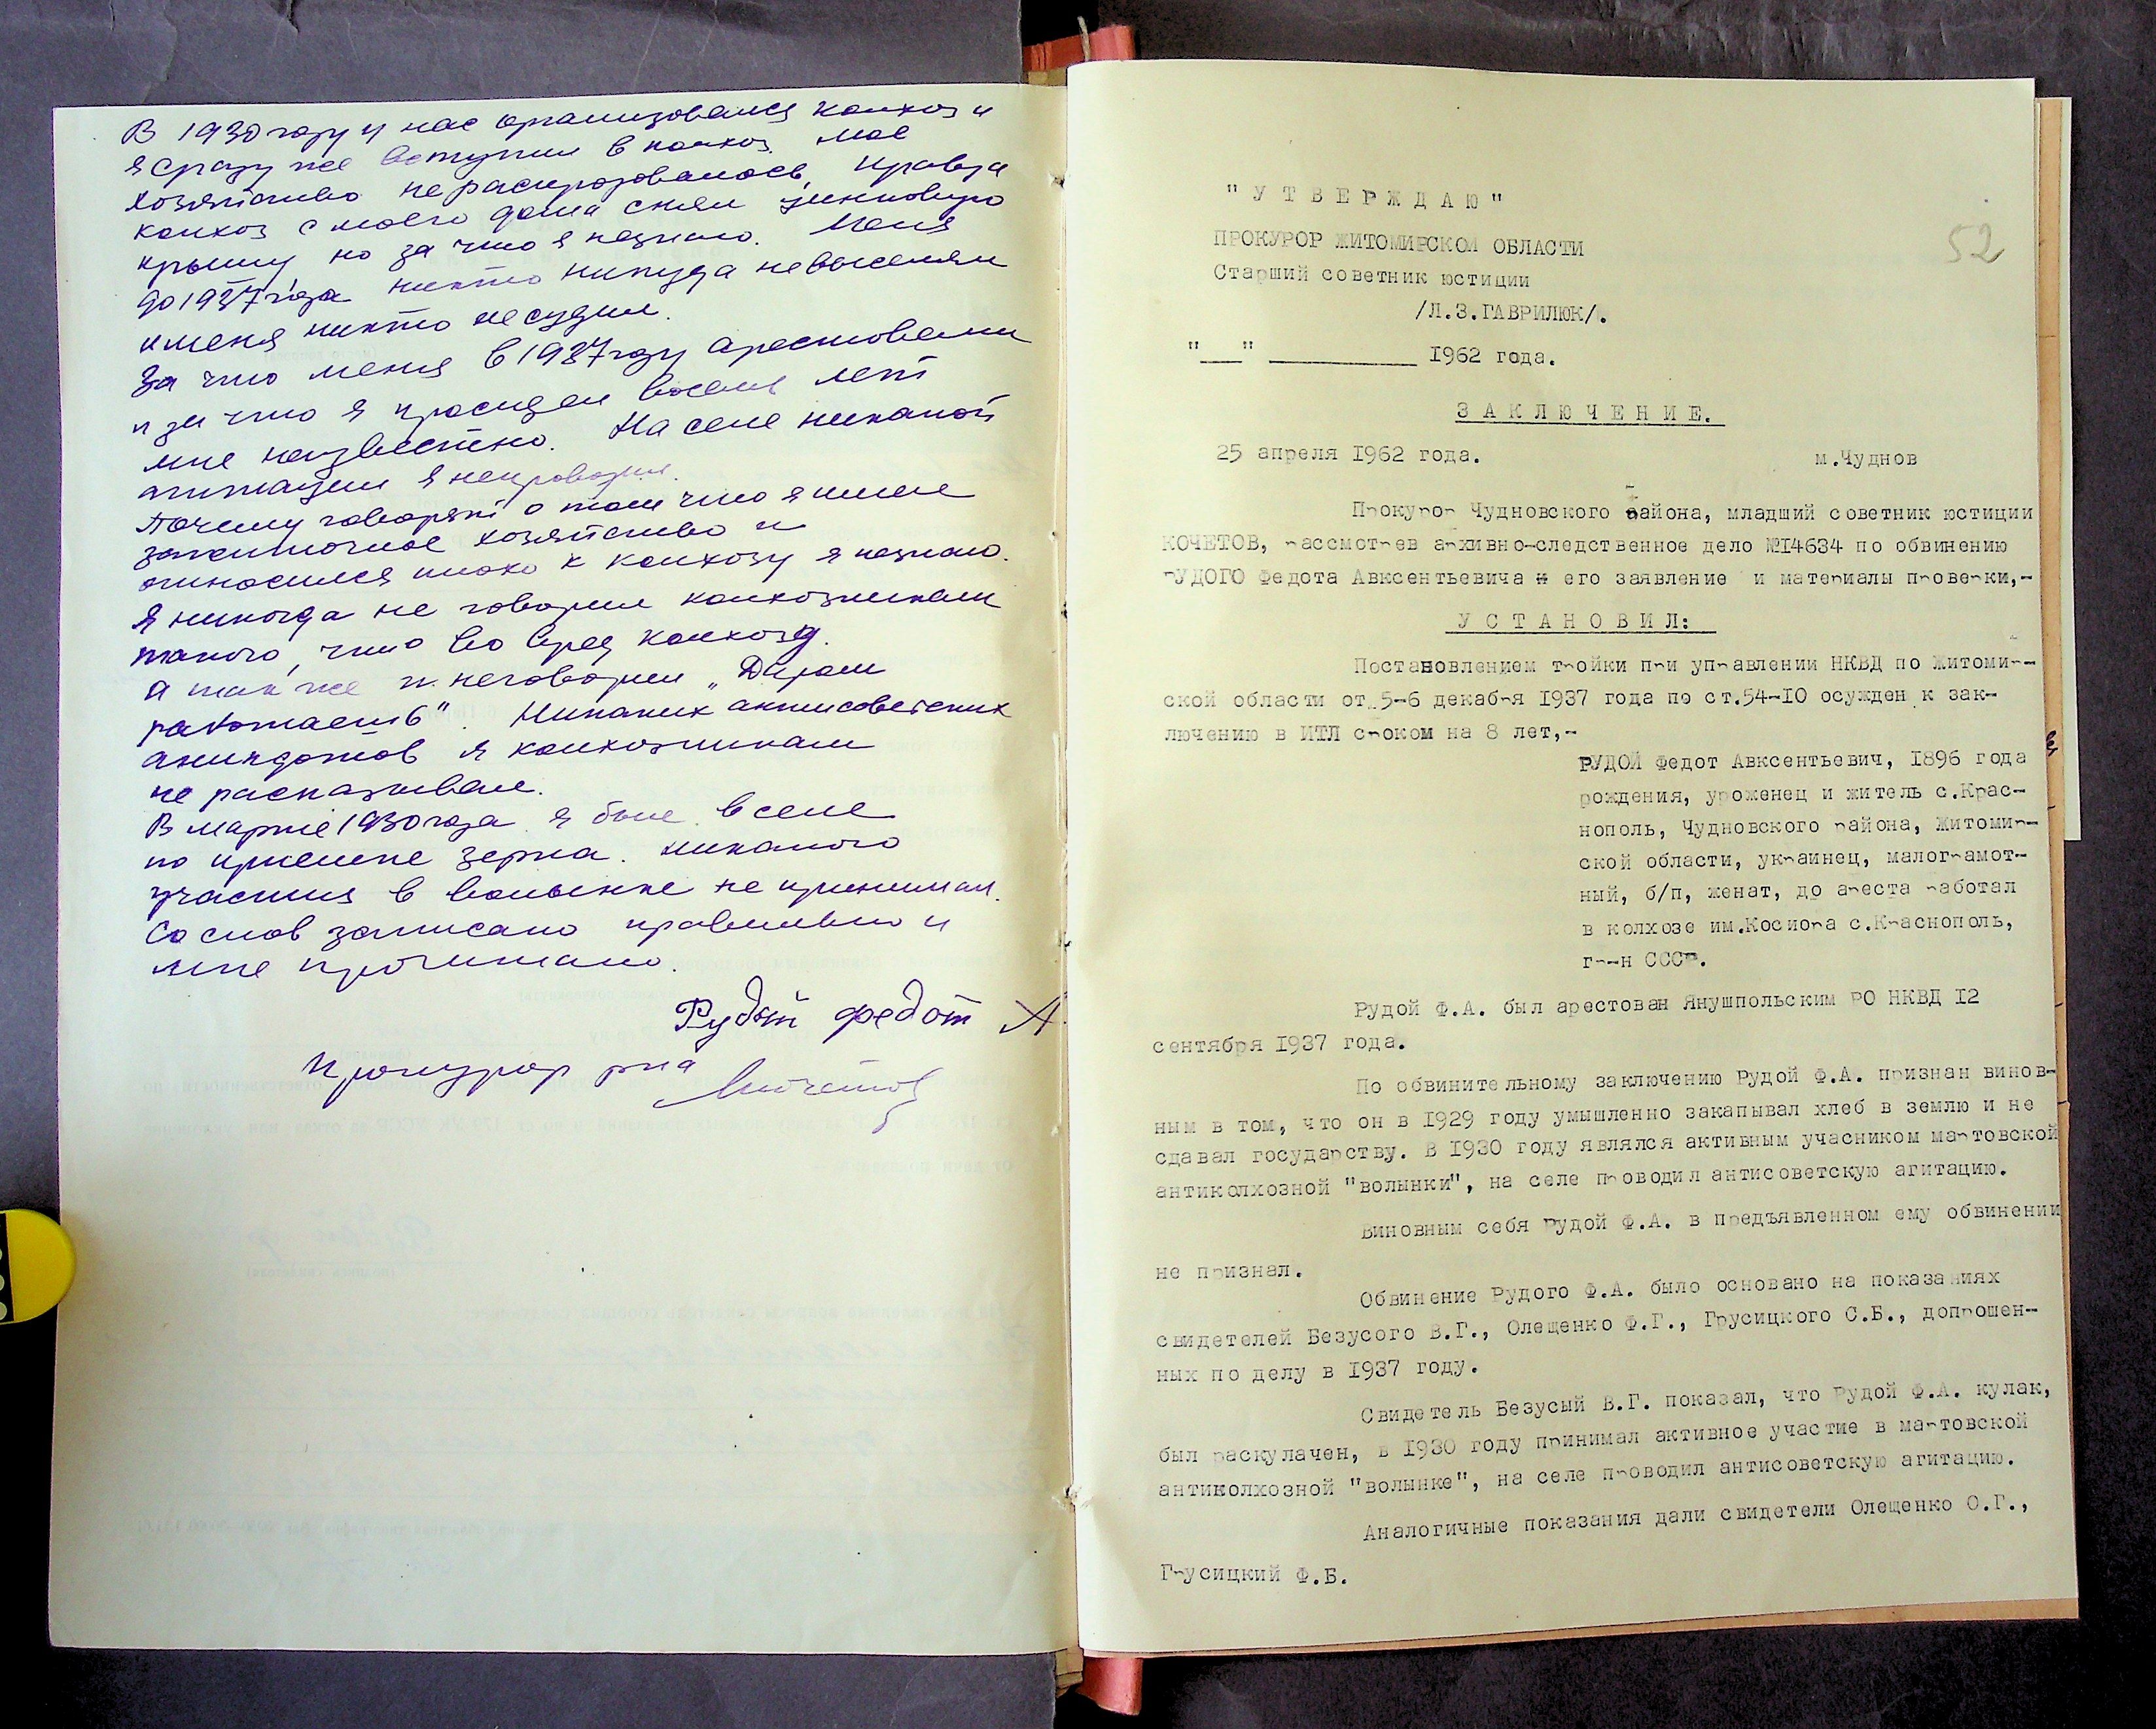 В 1930 году у нас организовался колхоз и
я сразу же вступил в колхоз. Мое
хозяйство не распродовалось, правда
колхоз с моего дома снял цинковую
крышу, но за что я незнаю. Меня
до 1937 года никто никуда невыселял
и меня никто не судил.
За что меня в 1937 году арестовали
и за что я просидел восемь лет
мне неизвестно. На селе никакой
агитации я непроводил.
Почему говорят о том что я имел
зажиточное хозяйство и
относился плохо к колхозу я незнаю.
Я никогда не говорил колхозникам
такого, что во вред колхозу.
А так же и неговорил „Даром
работаете". Никаких антисоветских
анекдотов я колхозникам
не расказывал.
В марте 1930 года я был в селе
по приемке зерна. Никакого
участия в волынке не принимал.
Со слов записано правильно и
мне прочитано.
Рудой федот А
Прокурор рна Кочетов
52
"УТВЕРЖДАЮ"
ПРОКУРОР ЖИТОМИРСКОЙ ОБЛАСТИ
Старший советник юстиции
/Л.З.ГАВРИЛЮК/.
"___" ___________ 1962 года.
ЗАКЛЮЧЕНИЕ.
25 апреля 1962 года. м.Чуднов
Прокурор Чудновского района, младший советник юстиции
КОЧЕТОВ, рассмотрев архивно-следственное дело №14634 по обвинению
РУДОГО Федота Авксентьевича и его заявление и материалы проверки,-
УСТАНОВИЛ:
Постановлением тройки при управлении НКВД по Житомир-
ской области от 5-6 декабря 1937 года по ст.54-10 осужден к зак-
лючению в ИТЛ сроком на 8 лет,-
РУДОЙ Федот Авксентьевич, 1896 года
рождения, уроженец и житель с.Крас-
нополь, Чудновского района, Житомир-
ской области, украинец, малограмот-
ный, б/п, женат, до ареста работал
в колхозе им.Косиора с.Краснополь,
гр-н СССР.
Рудой Ф.А. был арестован Янушпольским РО НКВД 12
сентября 1937 года.
По обвинительному заключению Рудой Ф.А. признан винов-
ным в том, что он в 1929 году умышленно закапывал хлеб в землю и не
сдавал государству. В 1930 году являлся активным учасником мартовской
антиколхозной "волынки", на селе проводил антисоветскую агитацию.
Виновным себя Рудой Ф.А. в предъявленном ему обвинении
не признал.
Обвинение Рудого Ф.А. было основано на показаниях
свидетелей Безусого В.Г., Олещенко Ф.Г., Грусицкого С.Б., допрошен-
ных по делу в 1937 году.
Свидетель Безусый В.Г. показал, что Рудой Ф.А. кулак,
был раскулачен, в 1930 году принимал активное участие в мартовской
антиколхозной "волынке", на селе проводил антисоветскую агитацию.
Аналогичные показания дали свидетели Олещенко О.Г.,
Грусицкий Ф.Б.